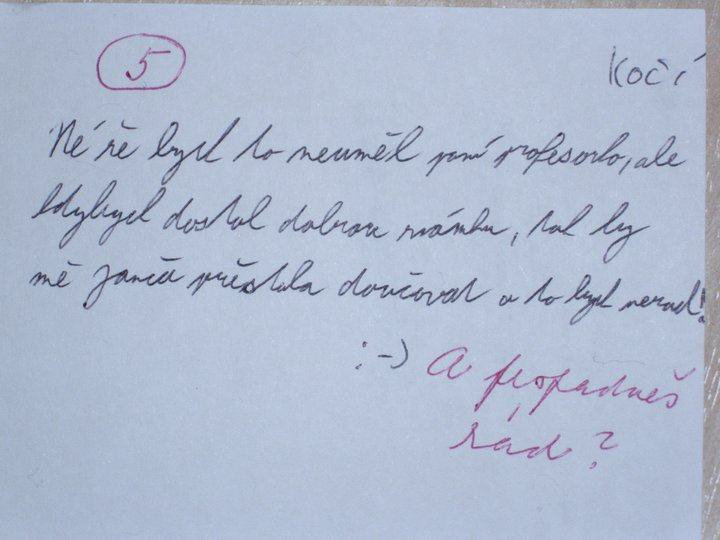 5
Kočí
Né že bych to neuměl paní profesorko, ale
kdybych dostal dobrou známku, tak by
mě Janča přestala doučovat a to bych nerad!
:-) A propadneš
rád?